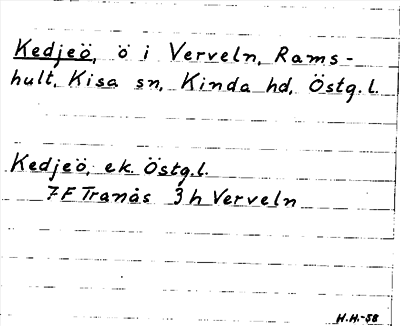 Kedjeö, ö i Verveln, Rams-
hult, Kisa sn, Kinda hd, Östg.l.
Kedjeö, ek. Östg.l.
7F Tranås 3h Verveln
H.H.-58